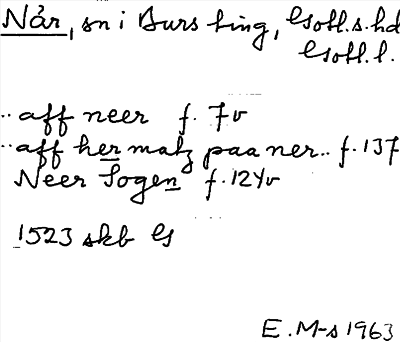 När, sn i Burs ting, Gotl.s.hd
Gotl.l.
..aff neer f. 7v
..aff hermatz paa ner.. f.137
Neer Sogen f.124v
1523 skb G
E.M-s 1963